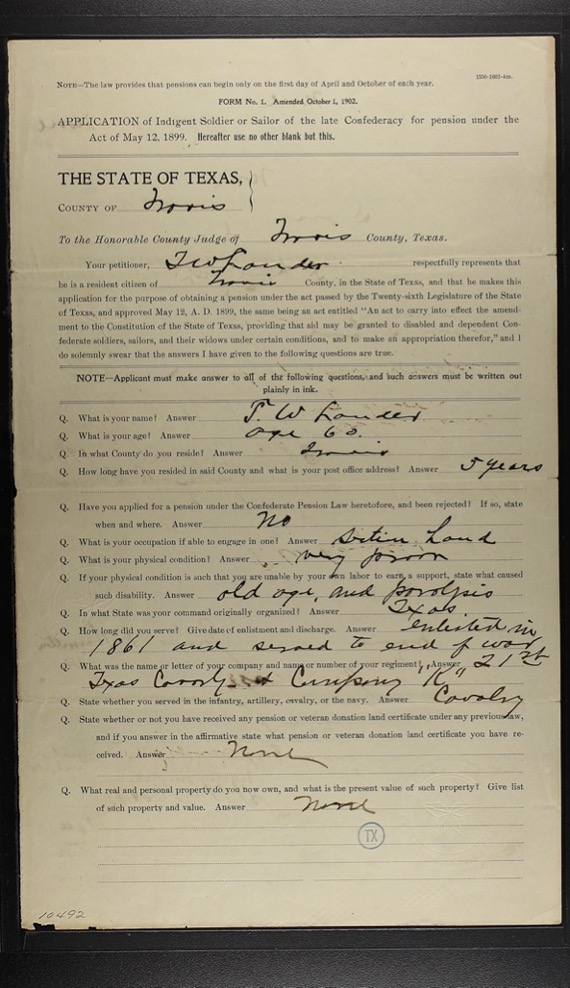 1550-1002-4m.
NOTE—The law provides that pensions can begin only on the first day of April and October of each year.
FORM No. 1. Amended October 1, 1902.
APPLICATION of Indigent Soldier or Sailor of the late Confederacy for pension under the
Act of May 12, 1899. Hereafter use no other blank but this.
THE STATE OF TEXAS,
COUNTY OF Travis
To the Honorable County Judge of Travis County, Texas.
Your petitioner, T W Lander respectfully represents that
he is a resident citizen of Travis County, in the State of Texas, and that he makes this
application for the purpose of obtaining a pension under the act passed by the Twenty-sixth Legislature of the State
of Texas, and approved May 12, A. D. 1899, the same being an act entitled "An act to carry into effect the amend-
ment to the Constitution of the State of Texas, providing that aid may be granted to disabled and dependent Con-
federate soldiers, sailors, and their widows under certain conditions, and to make an appropriation therefor," and I
do solemnly swear that the answers I have given to the following questions are true.
NOTE—Applicant must make answer to all of the following questions, and such answers must be written out
plainly in ink.
Q. What is your name? Answer T. W Lander
Q. What is your age? Answer age 60.
Q. In what County do you reside? Answer Travis
Q. How long have you resided in said County and what is your post office address? Answer 5 years
Q. Have you applied for a pension under the Confederate Pension Law heretofore, and been rejected? If so, state
when and where. Answer No
Q. What is your occupation if able to engage in one? Answer Hand
Q. What is your physical condition? Answer very
Q. If your physical condition is such that you are unable by your own labor to earn a support, state what caused
such disability. Answer old age, and paralysis
Q. In what State was your command originally organized? Answer Texas.
Q. How long did you serve? Give date of enlistment and discharge. Answer enlisted in
1861 and served to end of war
Q. What was the name or letter of your company and name or number of your regiment? Answer 21st
Texas Cavalry Company "K"
Q. State whether you served in the infantry, artillery, cavalry, or the navy. Answer Cavalry
Q. State whether or not you have received any pension or veteran donation land certificate under any previous law,
and if you answer in the affirmative state what pension or veteran donation land certificate you have re-
ceived. Answer None
Q. What real and personal property do you now own, and what is the present value of such property? Give list
of such property and value. Answer None
TX
10492